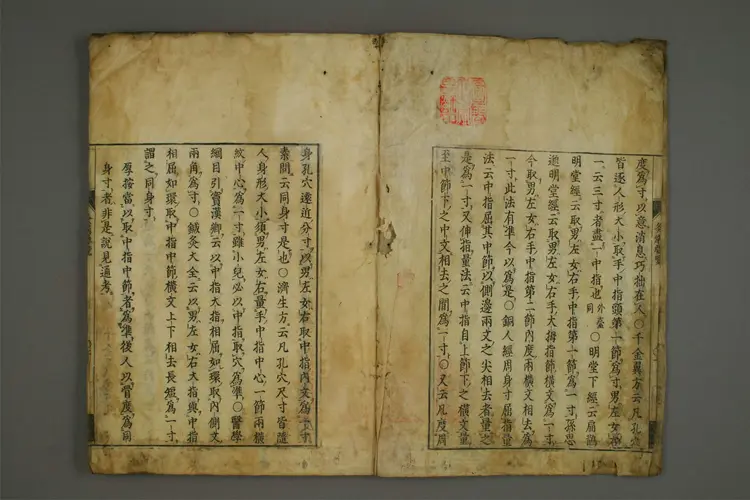 度爲寸以意消息巧拙在人〇千金翼方云凡孔穴
皆逐人形大小取手中指頭第一節爲寸男左女右
一云三寸者盡一中指也外臺同〇明堂下經云扁鵲
明堂經云取男左女右手中指第一節爲一寸孫思
邈明堂經云取男左女右手大拇指節橫文爲一寸
今取男左女右手中指第二節內度兩橫文相去爲
一寸此法有準今以爲是〇銅人經周身寸屈指量
法云中指屈其中節以側邊兩文之尖相去者量之
是爲一寸又伸指量法云中指自上節下之橫文量
至中節下之中文相去之間爲一寸〇又云凡度周
身孔穴遠近分寸以男左女右取中指內文爲一寸
素問云同身寸是也〇濟生方云凡孔穴尺寸皆隨
人身形大小須男左女右量手中指中心一節兩橫
紋中心爲一寸雖小兒必以中指取穴爲準〇醫學
綱目引竇漢卿云以中指大指相屈如環取內側文
兩角爲寸〇鍼灸大全云以男左女右大指與中指
相屈如環取中指中節橫文上下相去長短爲一寸
謂之同身寸
按當以取中指中節者爲準後人以骨度爲同
身寸者非是說見通考